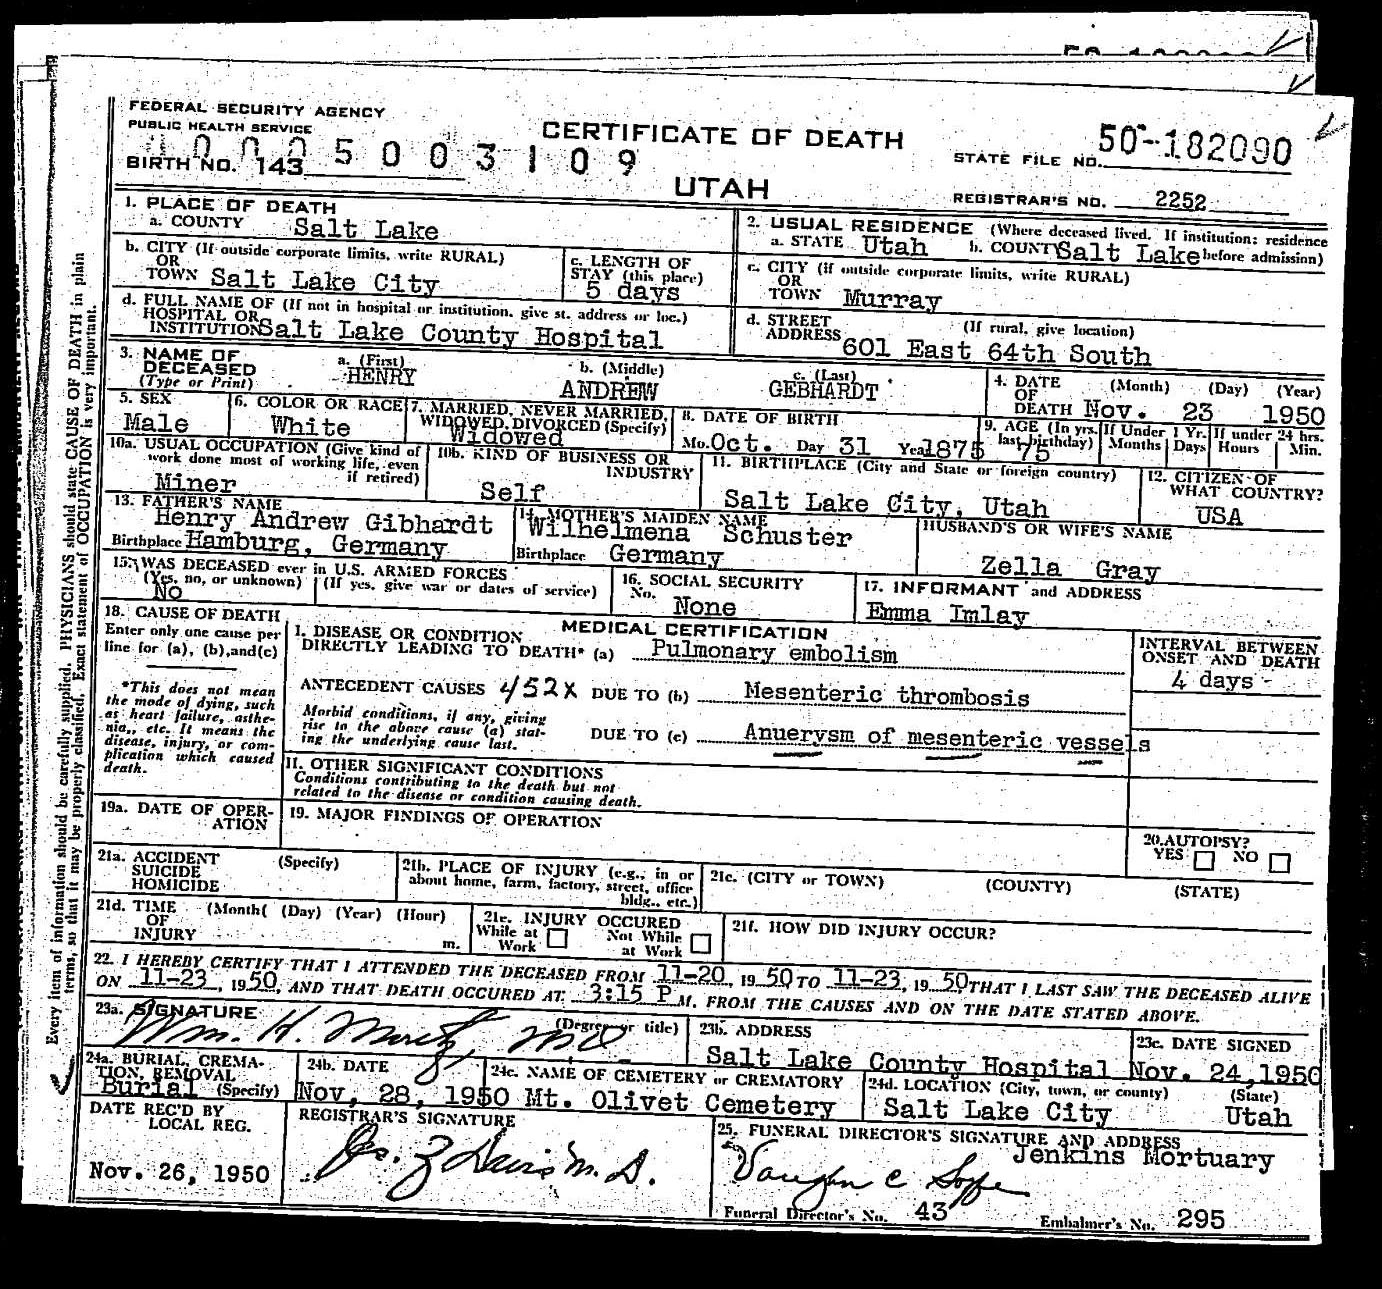 FEDERAL SECURITY AGENCY
PUBLIC HEALTH SERVICE
CERTIFICATE OF DEATH
STATE FILE NO. 50-182090
5003109
BIRTH NO. 143
UTAH
REGISTRAR'S NO. 2252
1. PLACE OF DEATH
a. COUNTY Salt Lake
2. USUAL RESIDENCE (Where deceased lived. If institution: residence before admission)
a. STATE Utah b. COUNTY Salt Lake
b. CITY (If outside corporate limits, write RURAL)
OR
TOWN Salt Lake City
c. LENGTH OF
STAY (this place)
5 days
c. CITY (if outside corporate limits, write RURAL)
OR
TOWN Murray
d. FULL NAME OF (If not in hospital or institution, give st. address or loc.)
HOSPITAL OR
INSTITUTION Salt Lake County Hospital
d. STREET (If rural, give location)
ADDRESS 601 East 64th South
3. NAME OF
DECEASED
(Type or Print)
a. (First) b. (Middle) c. (Last)
HENRY ANDREW GEBHARDT
4. DATE (Month) (Day) (Year)
OF
DEATH Nov. 23 1950
5. SEX
Male
6. COLOR OR RACE
White
7. MARRIED, NEVER MARRIED,
WIDOWED, DIVORCED (Specify)
Widowed
8. DATE OF BIRTH
Mo. Oct. Day 31 Year 1875
9. AGE (In yrs.
last birthday)
75
If Under 1 Yr.
Months Days
If under 24 hrs.
Hours Min.
10a. USUAL OCCUPATION (Give kind of
work done most of working life, even
if retired)
Miner
10b. KIND OF BUSINESS OR
INDUSTRY
Self
11. BIRTHPLACE (City and State or foreign country)
Salt Lake City, Utah
12. CITIZEN OF
WHAT COUNTRY?
USA
13. FATHER'S NAME
Henry Andrew Gibhardt
Birthplace Hamburg, Germany
14. MOTHER'S MAIDEN NAME
Wilhelmena Schuster
Birthplace Germany
HUSBAND'S OR WIFE'S NAME
Zella Gray
15. WAS DECEASED ever in U.S. ARMED FORCES
(Yes, no, or unknown) (If yes, give war or dates of service)
No
16. SOCIAL SECURITY
No. None
17. INFORMANT and ADDRESS
Emma Imlay
18. CAUSE OF DEATH
Enter only one cause per
line for (a), (b), and(c)
*This does not mean
the mode of dying, such
as heart failure, asthe-
nia, etc. It means the
disease, injury, or com-
plication which caused
death.
MEDICAL CERTIFICATION
I. DISEASE OR CONDITION
DIRECTLY LEADING TO DEATH* (a) Pulmonary embolism
ANTECEDENT CAUSES 452X DUE TO (b) Mesenteric thrombosis
Morbid conditions, if any, giving
rise to the above cause (a) stat-
ing the underlying cause last.
DUE TO (c) Anuerysm of mesenteric vessels
II. OTHER SIGNIFICANT CONDITIONS
Conditions contributing to the death but not
related to the disease or condition causing death.
INTERVAL BETWEEN
ONSET AND DEATH
4 days -
19a. DATE OF OPER-
ATION
19. MAJOR FINDINGS OF OPERATION
20. AUTOPSY?
YES NO
21a. ACCIDENT (Specify)
SUICIDE
HOMICIDE
21b. PLACE OF INJURY (e.g., in or
about home, farm, factory, street, office
bldg., etc.)
21c. (CITY or TOWN) (COUNTY) (STATE)
21d. TIME (Month( (Day) (Year) (Hour)
OF
INJURY m.
21e. INJURY OCCURED
While at Work Not While at Work
21f. HOW DID INJURY OCCUR?
22. I HEREBY CERTIFY THAT I ATTENDED THE DECEASED FROM 11-20, 1950 TO 11-23, 1950 THAT I LAST SAW THE DECEASED ALIVE
ON 11-23, 1950, AND THAT DEATH OCCURED AT 3:15 P M. FROM THE CAUSES AND ON THE DATE STATED ABOVE.
23a. SIGNATURE (Degree or title)
Wm. H. Moretz, MD
23b. ADDRESS
Salt Lake County Hospital
23c. DATE SIGNED
Nov. 24, 1950
24a. BURIAL, CREMA-
TION, REMOVAL
Burial (Specify)
24b. DATE
Nov, 28, 1950
24c. NAME OF CEMETERY or CREMATORY
Mt. Olivet Cemetery
24d. LOCATION (City, town, or county) (State)
Salt Lake City Utah
DATE REC'D BY
LOCAL REG.
Nov. 26, 1950
REGISTRAR'S SIGNATURE
Davis M.D.
25. FUNERAL DIRECTOR'S SIGNATURE AND ADDRESS
Jenkins Mortuary
Vaughn C
Funeral Director's No. 43
Embalmer's No. 295
Every item of information should be carefully supplied. PHYSICIANS should state CAUSE OF DEATH in plain
terms, so that it may be properly classified. Exact statement of OCCUPATION is very important.